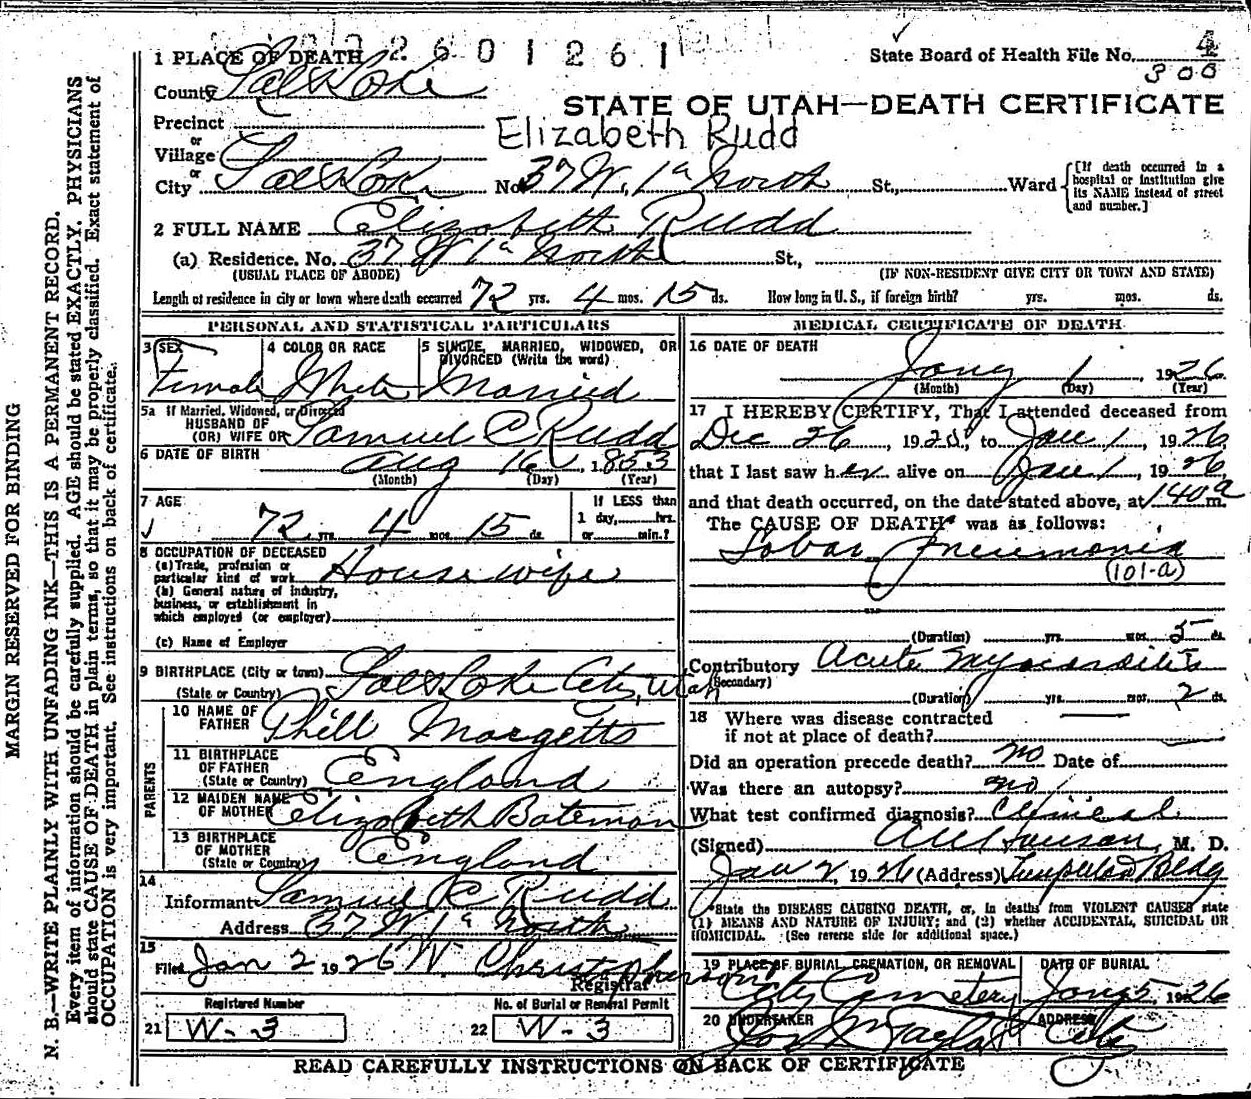 2601261
1 PLACE OF DEATH
State Board of Health File No. 4
300
County Salt Lake
STATE OF UTAH—DEATH CERTIFICATE
Precinct
Elizabeth Rudd
or
Village
or
City Salt Lake No. 37 W. 1st North St., Ward
[If death occurred in a hospital or institution give its NAME instead of street and number.]
2 FULL NAME Elizabeth Rudd
(a) Residence. No. 37 W 1st North St.,
(USUAL PLACE OF ABODE) (IF NON-RESIDENT GIVE CITY OR TOWN AND STATE)
Length of residence in city or town where death occurred 72 yrs. 4 mos. 15 ds. How long in U. S., if foreign birth? yrs. mos. ds.
PERSONAL AND STATISTICAL PARTICULARS
3 SEX 4 COLOR OR RACE 5 SINGLE, MARRIED, WIDOWED, OR DIVORCED (Write the word)
Female White Married
5a If Married, Widowed, or Divorced
HUSBAND OF
(OR) WIFE OF Samuel C Rudd
6 DATE OF BIRTH Aug 16 1853
(Month) (Day) (Year)
7 AGE If LESS than
1 day, hrs.
72 yrs. 4 mos. 15 ds. or min.?
8 OCCUPATION OF DECEASED
(a) Trade, profession or
particular kind of work House wife
(b) General nature of industry,
business, or establishment in
which employed (or employer)
(c) Name of Employer
9 BIRTHPLACE (City or town) Salt Lake City, Utah
(State or Country)
PARENTS
10 NAME OF
FATHER Phill Margetts
11 BIRTHPLACE
OF FATHER England
(State or Country)
12 MAIDEN NAME
OF MOTHER Elizabeth Bateman
13 BIRTHPLACE
OF MOTHER England
(State or Country)
14
Informant Samuel C. Rudd
Address 37 W 1st North
15
Filed Jan 2 1926 W. Christopherson
Registrar
Registered Number No. of Burial or Removal Permit
21 W-3 22 W-3
MEDICAL CERTIFICATE OF DEATH
16 DATE OF DEATH
Jany 1 1926
(Month) (Day) (Year)
17 I HEREBY CERTIFY, That I attended deceased from
Dec 26, 1925, to Jan 1, 1926
that I last saw her alive on Jan 1, 1926
and that death occurred, on the date stated above, at 140a m.
The CAUSE OF DEATH* was as follows:
Lobar Pneumonia
(101-a)
(Duration) yrs. mos. 5 ds.
Contributory Acute Myocarditis
(Secondary)
(Duration) yrs. mos. 2 ds.
18 Where was disease contracted
if not at place of death?
Did an operation precede death? no Date of
Was there an autopsy? no
What test confirmed diagnosis? Clinical
(Signed) M. D.
Jan 2, 1926 (Address) Templeton Bldg
*State the DISEASE CAUSING DEATH, or, in deaths from VIOLENT CAUSES state
(1) MEANS AND NATURE OF INJURY; and (2) whether ACCIDENTAL, SUICIDAL OR
HOMICIDAL. (See reverse side for additional space.)
19 PLACE OF BURIAL, CREMATION, OR REMOVAL DATE OF BURIAL
City Cemetery Jany 5, 1926
20 UNDERTAKER ADDRESS
Jos Wm Taylor City
READ CAREFULLY INSTRUCTIONS ON BACK OF CERTIFICATE
MARGIN RESERVED FOR BINDING
N. B.—WRITE PLAINLY WITH UNFADING INK—THIS IS A PERMANENT RECORD.
Every item of information should be carefully supplied. AGE should be stated EXACTLY. PHYSICIANS
should state CAUSE OF DEATH in plain terms, so that it may be properly classified. Exact statement of
OCCUPATION is very important. See instructions on back of certificate.